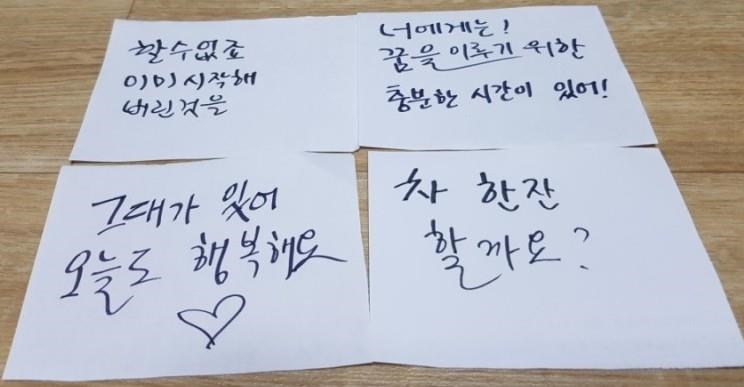 할수없죠
이미시작해
버린것을
너에게는!
꿈을 이루기 위한
충분한 시간이 있어!
그대가 있어
오늘도 행복해요
차 한잔
할까요?